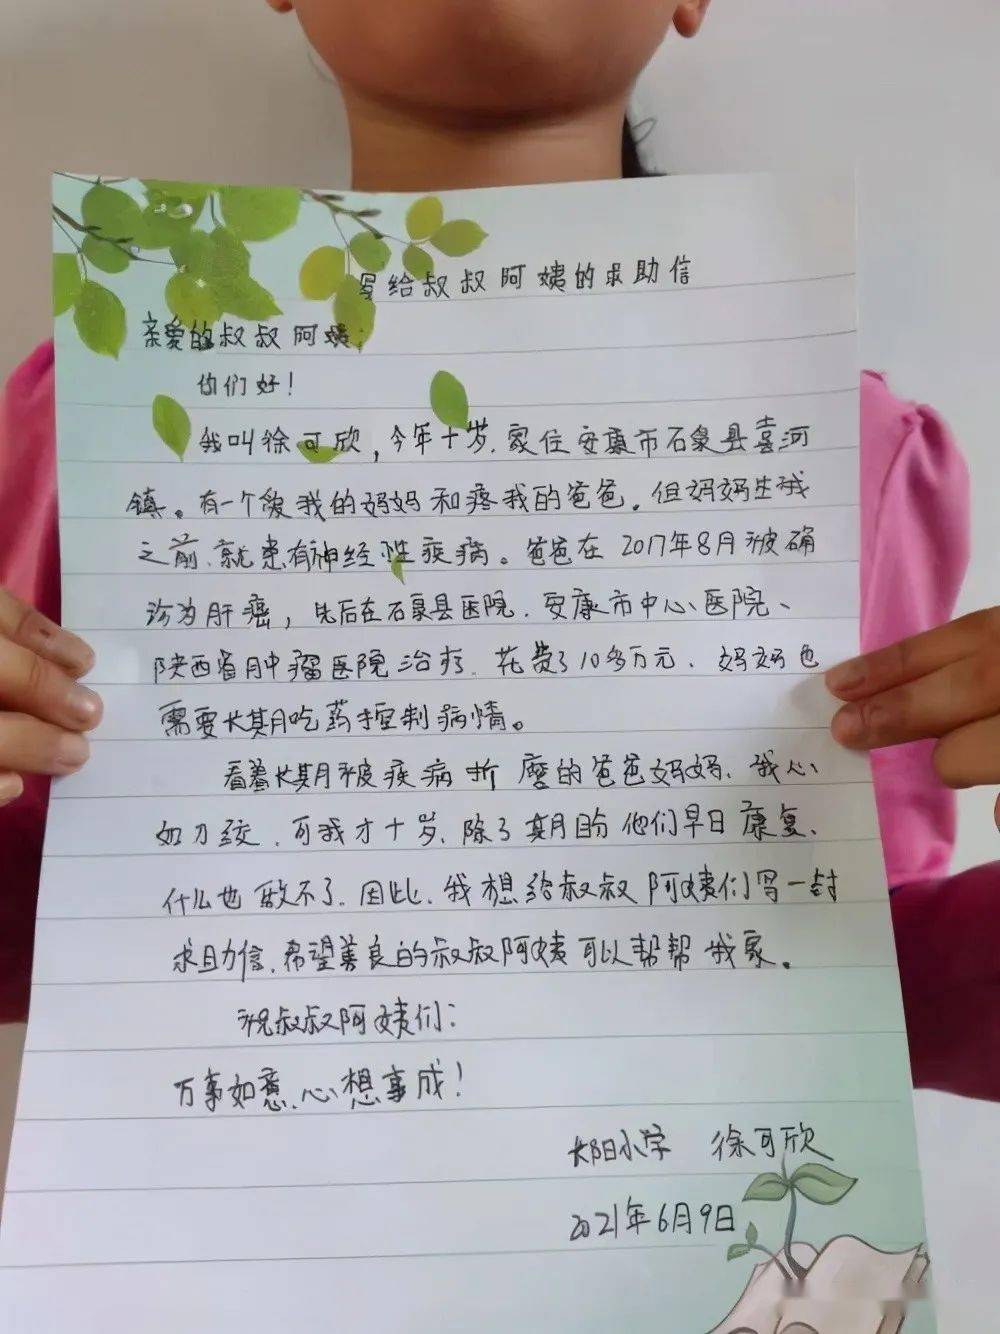 写给叔叔阿姨的求助信
亲爱的叔叔阿姨:
你们好!
我叫徐可欣,今年十岁.家住安康市石泉县喜河
镇。有一个爱我的妈妈和疼我的爸爸.但妈妈生我
之前、就患有神经性疾病。爸爸在2017年8月被确
诊为肝癌,先后在石泉县医院.安康市中心医院、
陕西省肿瘤医院治疗.花费了10多万元.妈妈也
需要长期吃药控制病情。
看着长期被疾病折磨的爸爸妈妈、我心
如刀绞.可我才十岁、除了期盼他们早日康复、
什么也做不了.因此.我想给叔叔阿姨们写一封
求助信.希望善良的叔叔阿姨可以帮帮我家。
祝叔叔阿姨们:
万事如意、心想事成!
长阳小学 徐可欣
2021年6月9日